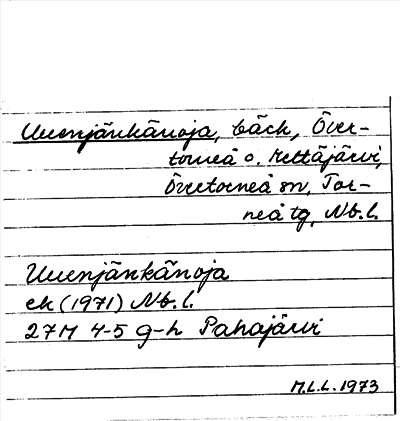 Uuenjänkänoja, bäck, Över-
torneå o. Hettäjärvi,
Övertorneå sn, Tor-
neå tg, Nb.l.
Uuenjänkänoja
ek (1971) Nb.l.
27M 4-5 g-h Pahajärvi
M.L.L. 1973